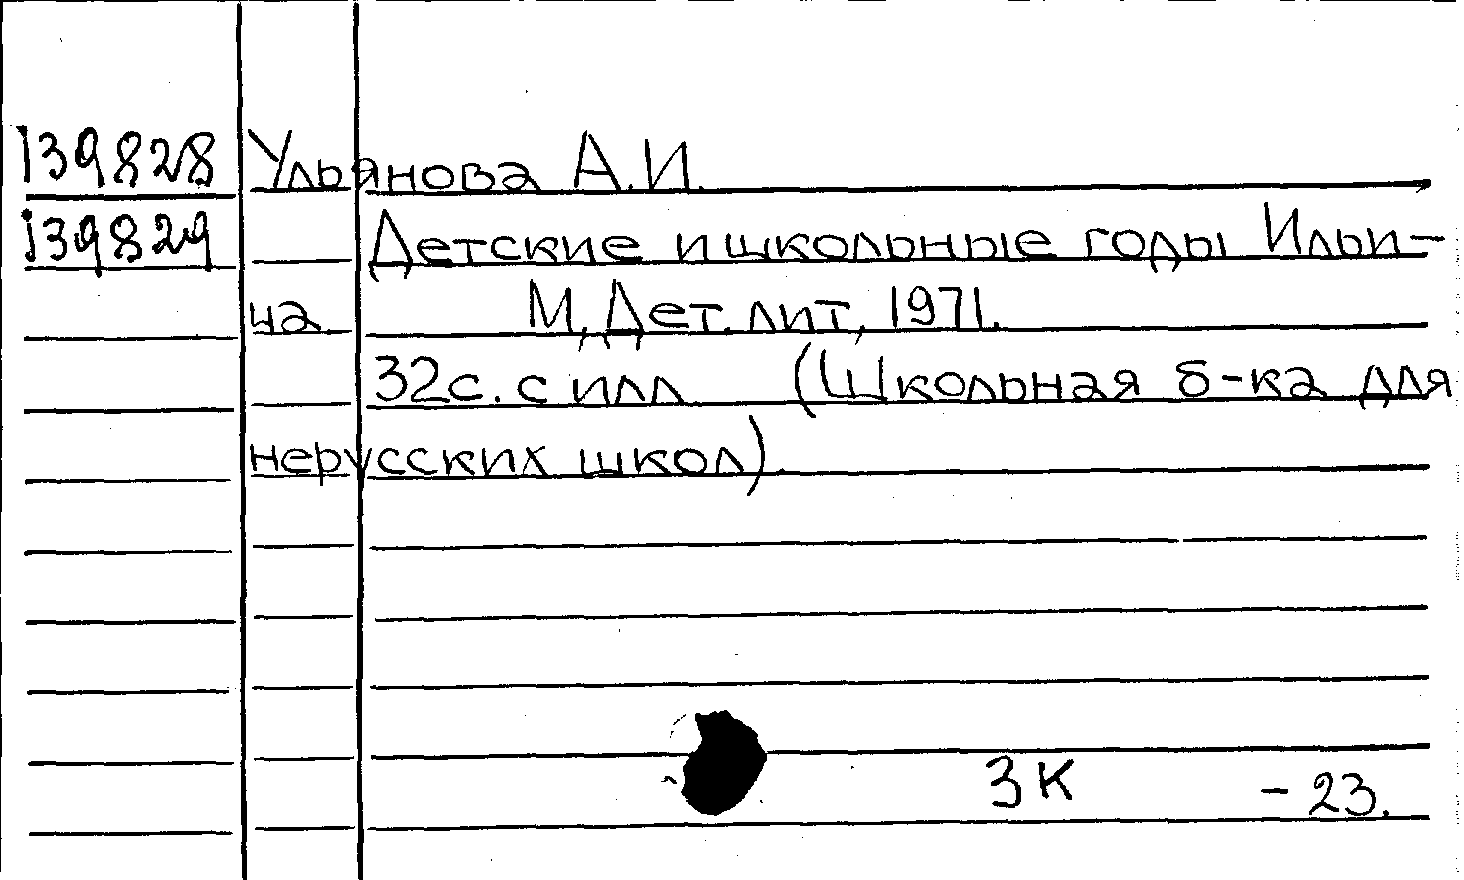 139828 Ульянова А.И.
139829 Детские и школьные годы Ильи-
ча. М, Дет. лит, 1971.
32с. с илл (Школьная б-ка для
нерусских школ).
3К - 23.